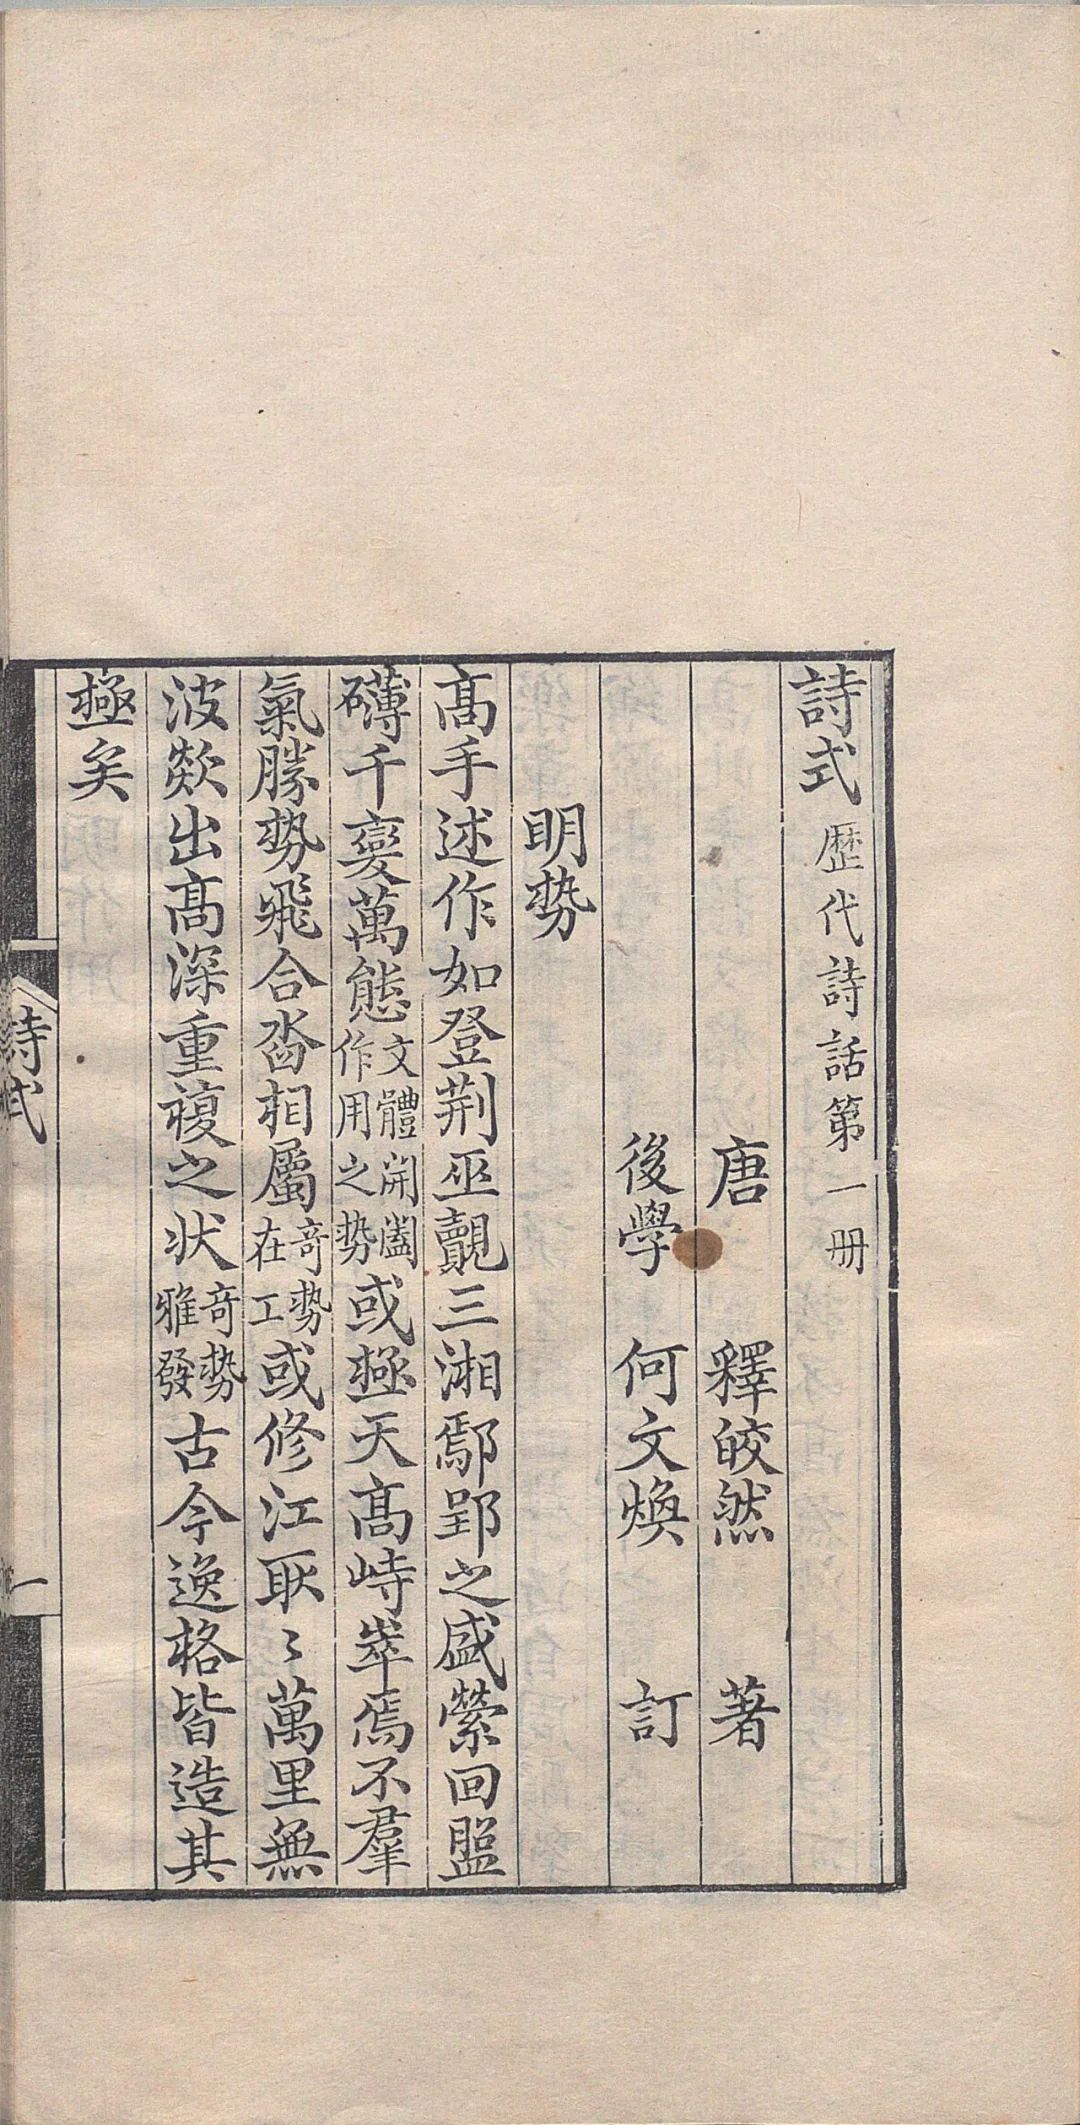 詩式歷代詩話第一册
唐 釋皎然 著
後學 何文煥 訂
明勢
髙手述作如登荆巫覿三湘鄢郢之盛縈回盤
礴千變萬態文體開闔作用之勢或極天髙峙崒焉不羣
氣勝勢飛合沓相屬奇勢在工或修江耿〻萬里無
波欻出髙深重複之狀奇勢雅發古今逸格皆造其
極矣
詩式
一